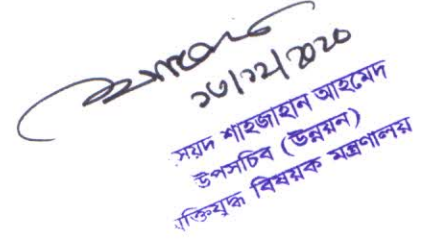 সয়দ শাহজাহান আহমেদ
উপসচিব (উন্নয়ন)
ক্তিযুদ্ধ বিষয়ক মন্ত্রণালয়